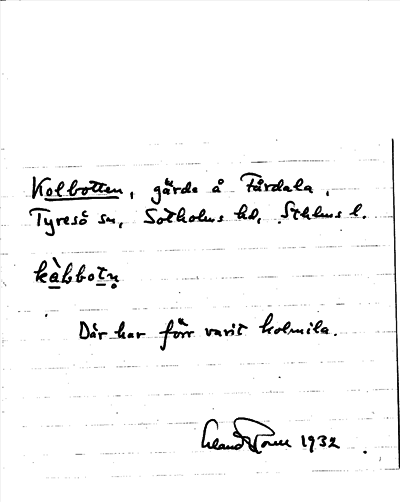 Kolbotten, gärde å Fårdala,
Tyresö sn, Sotholms hd, Sthlms l.
kàlbotn̥
Där har förr varit kolmila.
1932